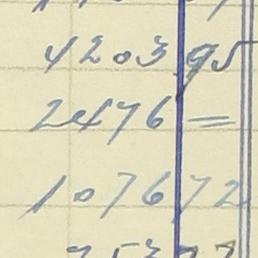 4203 95
2476 =
1076 72